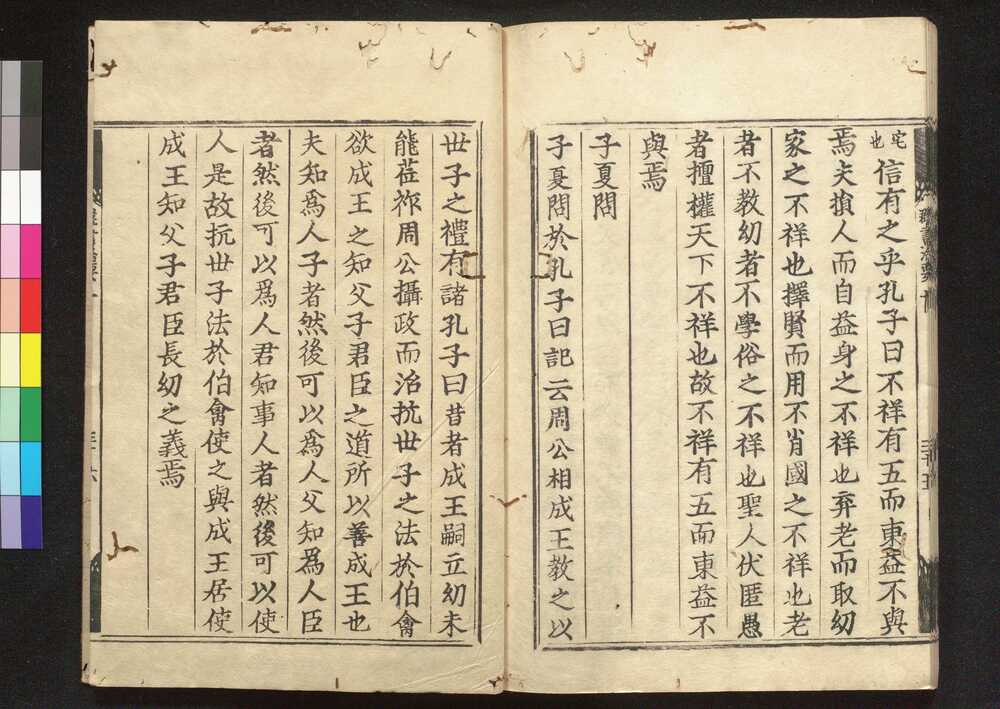 宅也信有之乎孔子曰不祥有五而東益不與
焉夫損人而自益身之不祥也弃老而取幼
家之不祥也擇賢而用不肖國之不祥也老
者不教幼者不學俗之不祥也聖人伏匿愚
者擅權天下不祥也故不祥有五而東益不
與焉
子夏問
子夏問於孔子曰記云周公相成王教之以
世子之禮有諸孔子曰昔者成王嗣立幼未
能莅祚周公攝政而治抗世子之法於伯禽
欲成王之知父子君臣之道所以善成王也
夫知爲人子者然後可以爲人父知爲人臣
者然後可以爲人君知事人者然後可以使
人是故抗世子法於伯禽使之與成王居使
成王知父子君臣長幼之義焉